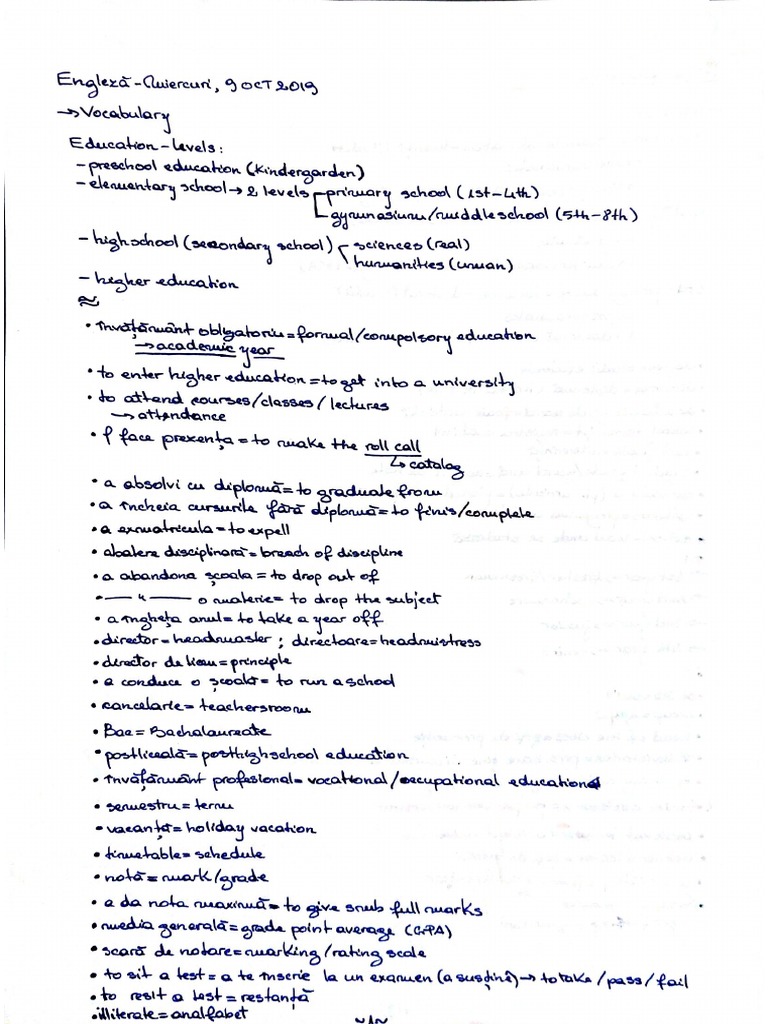 Engleză - Miercuri, 9 OCT 2019
→ Vocabulary
Education - levels:
- preschool education (Kindergarden)
- elementary school → 2 levels primary school (1st - 4th)
gymnasium/middle school (5th - 8th)
- highschool (secondary school) sciences (real)
humanities (uman)
- higher education
≈
• învățământ obligatoriu = formal/compolsory education
→ academic year
• to enter higher education = to get into a university
• to attend courses/classes/lectures
→ attendance
• f face prezența = to make the roll call
↳ catalog
• a absolvi cu diplomă = to graduate from
• a încheia cursurile fără diplomă = to finis/complete
• a exmatricula = to expell
• abatere disciplinară = breach of discipline
• a abandona școala = to drop out of
• —— 〃 —— o materie = to drop the subject
• a îngheța anul = to take a year off
• director = headmaster ; directoare = headmistress
• director de liceu = principle
• a conduce o școală = to run a school
• cancelarie = teachersroom
• Bac = Bachalaureate
• postliceală = posthighschool education
• învățământ profesional = vocational/occupational education
• semestru = term
• vacanță = holiday vacation
• timetable = schedule
• notă = mark/grade
• a da nota maximă = to give smb full marks
• media generală = grade point average (GPA)
• scară de notare = marking/rating scale
• to sit a test = a te înscrie la un examen (a susține) → to take/pass/fail
• to resit a test = restanță
• illiterate = analfabet